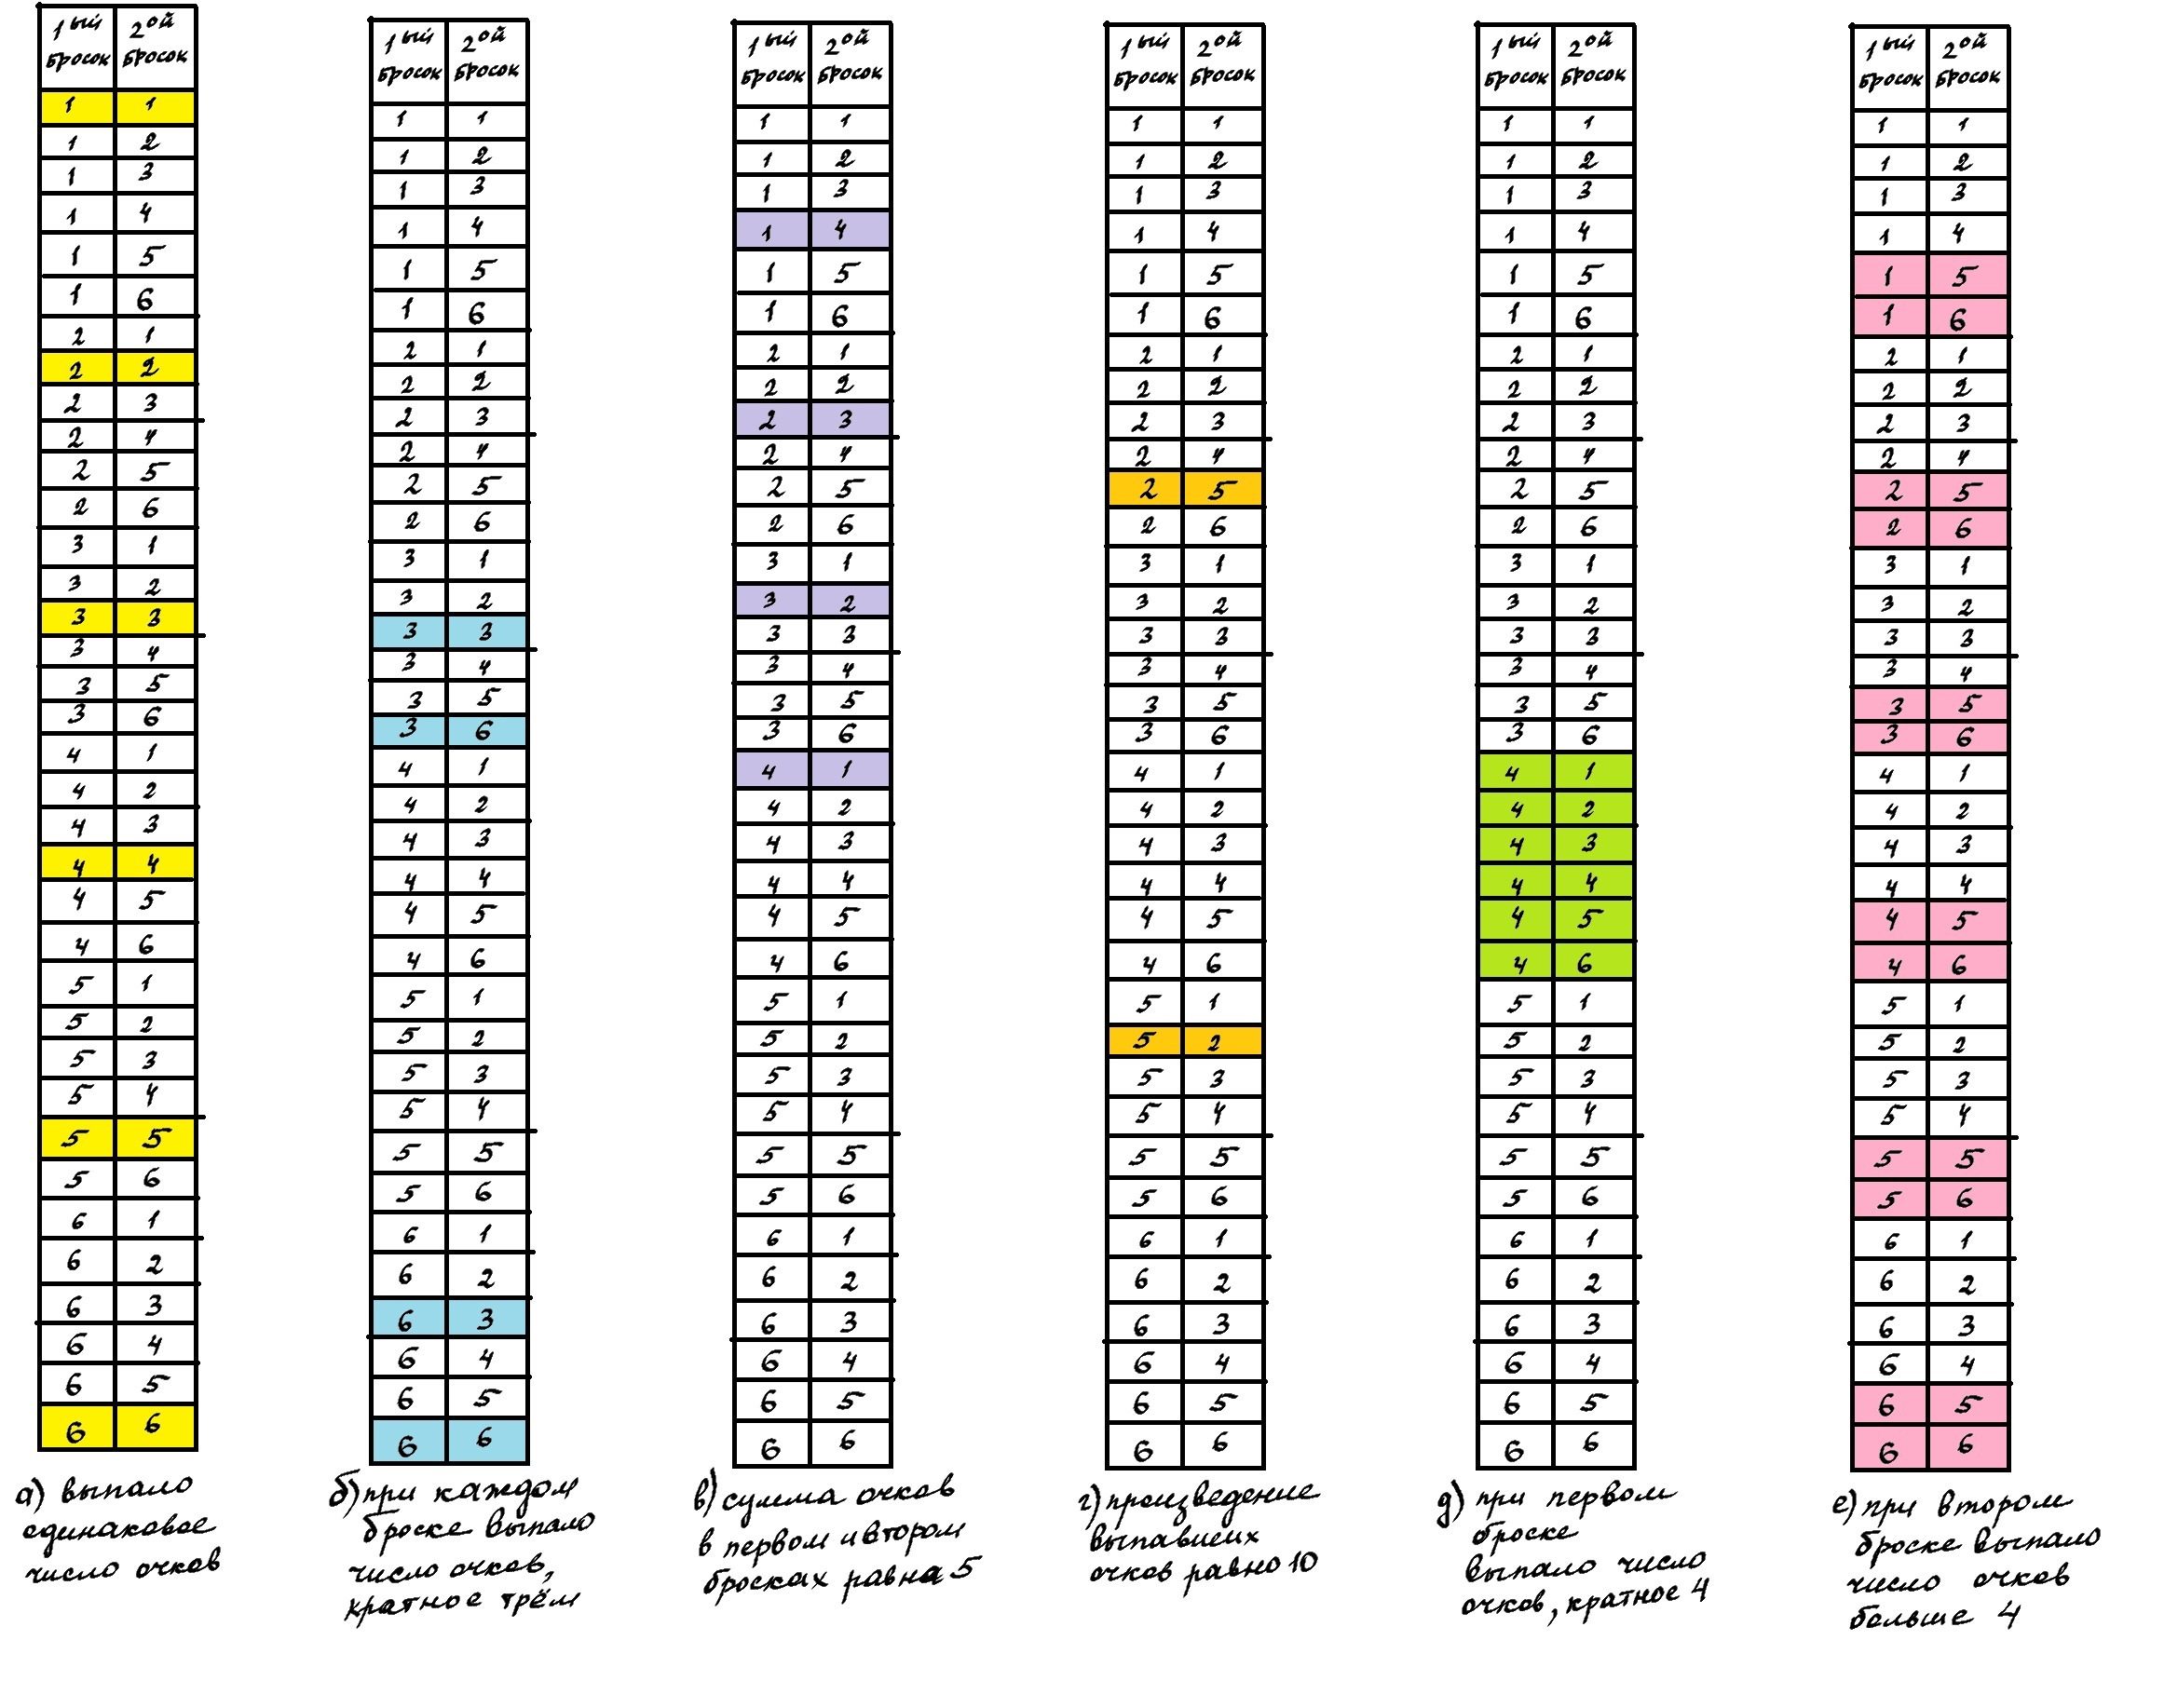 1ый 2ой
бросок бросок
1 1
1 2
1 3
1 4
1 5
1 6
2 1
2 2
2 3
2 4
2 5
2 6
3 1
3 2
3 3
3 4
3 5
3 6
4 1
4 2
4 3
4 4
4 5
4 6
5 1
5 2
5 3
5 4
5 5
5 6
6 1
6 2
6 3
6 4
6 5
6 6
а) выпало
одинаковое
число очков
1ый 2ой
бросок бросок
1 1
1 2
1 3
1 4
1 5
1 6
2 1
2 2
2 3
2 4
2 5
2 6
3 1
3 2
3 3
3 4
3 5
3 6
4 1
4 2
4 3
4 4
4 5
4 6
5 1
5 2
5 3
5 4
5 5
5 6
6 1
6 2
6 3
6 4
6 5
6 6
б) при каждом
броске выпало
число очков,
кратное трём
1ый 2ой
бросок бросок
1 1
1 2
1 3
1 4
1 5
1 6
2 1
2 2
2 3
2 4
2 5
2 6
3 1
3 2
3 3
3 4
3 5
3 6
4 1
4 2
4 3
4 4
4 5
4 6
5 1
5 2
5 3
5 4
5 5
5 6
6 1
6 2
6 3
6 4
6 5
6 6
в) сумма очков
в первом и втором
бросках равна 5
1ый 2ой
бросок бросок
1 1
1 2
1 3
1 4
1 5
1 6
2 1
2 2
2 3
2 4
2 5
2 6
3 1
3 2
3 3
3 4
3 5
3 6
4 1
4 2
4 3
4 4
4 5
4 6
5 1
5 2
5 3
5 4
5 5
5 6
6 1
6 2
6 3
6 4
6 5
6 6
г) произведение
выпавших
очков равно 10
1ый 2ой
бросок бросок
1 1
1 2
1 3
1 4
1 5
1 6
2 1
2 2
2 3
2 4
2 5
2 6
3 1
3 2
3 3
3 4
3 5
3 6
4 1
4 2
4 3
4 4
4 5
4 6
5 1
5 2
5 3
5 4
5 5
5 6
6 1
6 2
6 3
6 4
6 5
6 6
д) при первом
броске
выпало число
очков, кратное 4
1ый 2ой
бросок бросок
1 1
1 2
1 3
1 4
1 5
1 6
2 1
2 2
2 3
2 4
2 5
2 6
3 1
3 2
3 3
3 4
3 5
3 6
4 1
4 2
4 3
4 4
4 5
4 6
5 1
5 2
5 3
5 4
5 5
5 6
6 1
6 2
6 3
6 4
6 5
6 6
е) при втором
броске выпало
число очков
больше 4